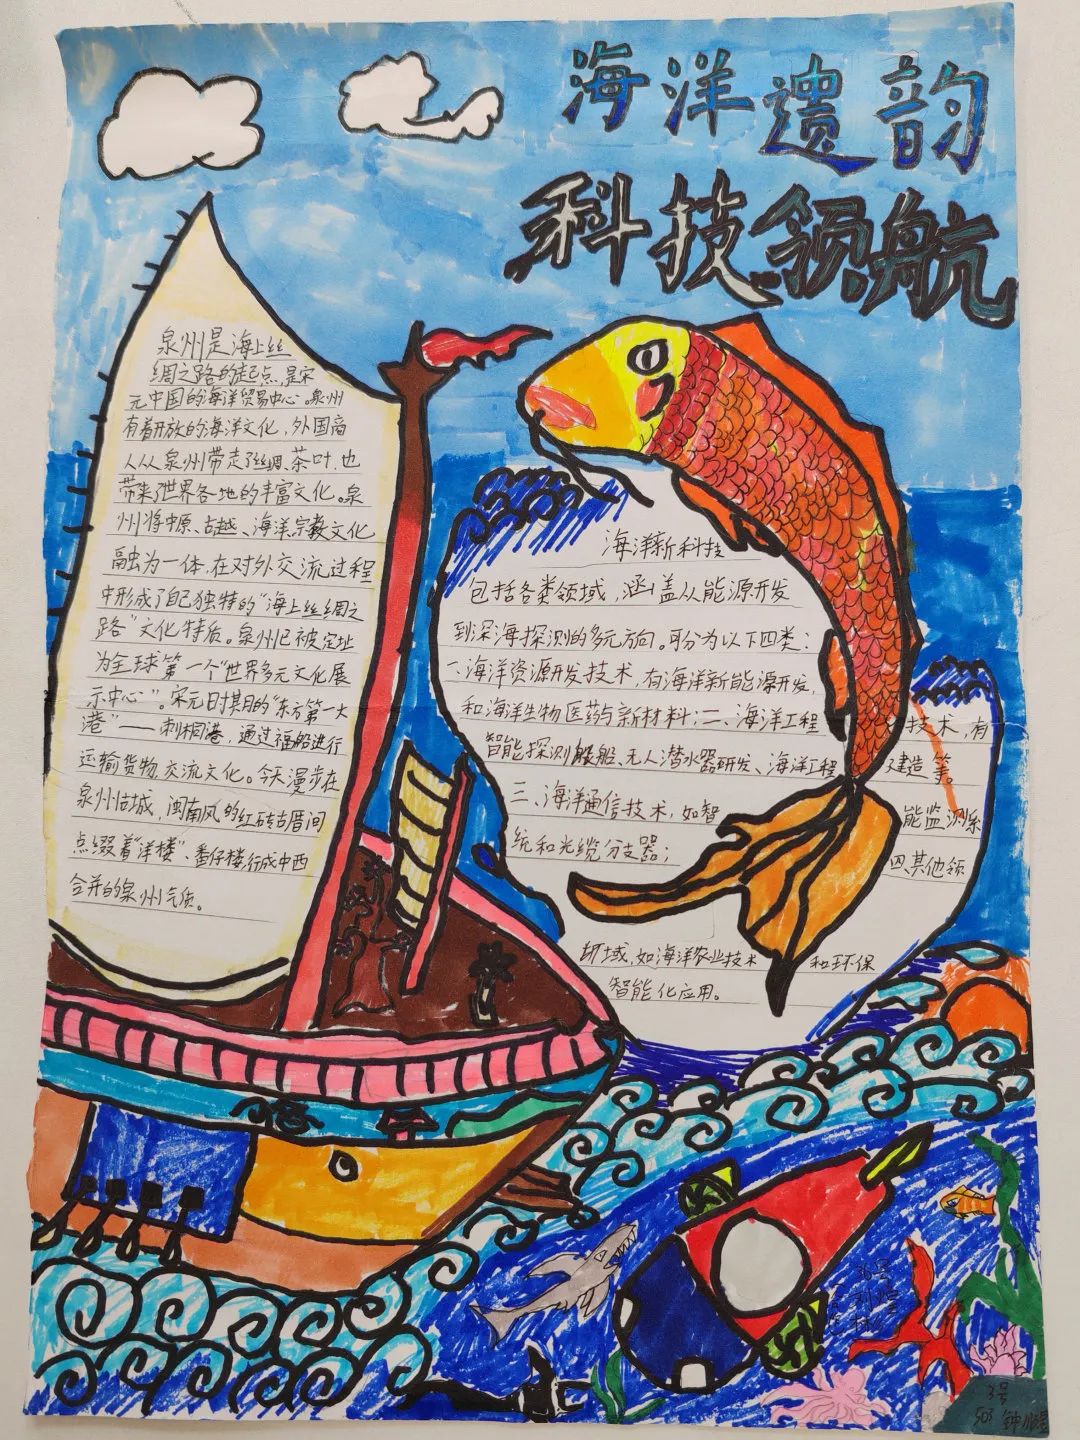 海洋遗韵
科技领航
泉州是海上丝
绸之路的起点,是宋
元中国的海洋贸易中心。泉州
有着开放的海洋文化,外国商
人从泉州带走了丝绸、茶叶,也
带来了世界各地的丰富文化。泉
州将中原、古越、海洋、宗教文化
融为一体,在对外交流过程
中形成了自己独特的“海上丝绸之
路”文化特质。泉州已被定址
为全球第一个“世界多元文化展
示中心”。宋元时期的“东方第一大
港”——刺桐港,通过福船进行
运输货物,交流文化。今天漫步在
泉州古城,闽南风的红砖古厝间
点缀着“洋楼”、番仔楼,形成中西
合并的泉州气质。
海洋新科技
包括各类领域,涵盖从能源开发
到深海探测的多元方向。可分为以下四类:
一、海洋资源开发技术,有海洋新能源开发,
和海洋生物医药与新材料;二、海洋工程 技术,有
智能探测 船舶,无人潜水器研发、海洋工程 建造等。
三、海洋通信技术,如智 能监测系
统和光缆分支器; 四、其他领
域,如海洋农业技术 和环保
智能化应用。
3号
503